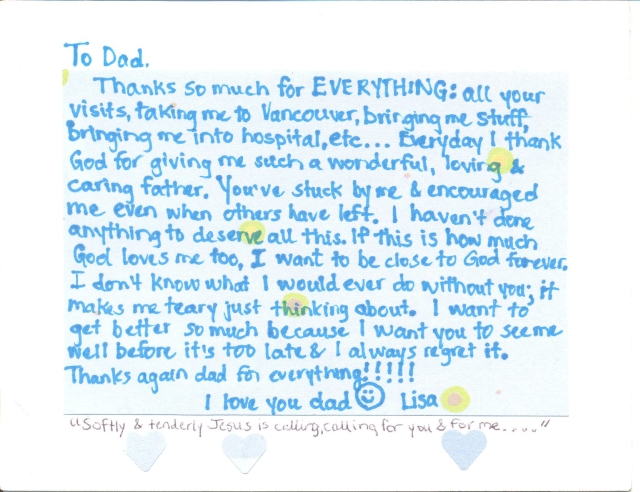 To Dad,
Thanks so much for EVERYTHING: all your
visits, taking me to Vancouver, bringing me stuff,
bringing me into hospital, etc... Everyday I thank
God for giving me such a wonderful, loving &
caring father. You've stuck by me & encouraged
me even when others have left. I haven't done
anything to deserve all this. If this is how much
God loves me too, I want to be close to God forever.
I don't know what I would ever do without you; it
makes me teary just thinking about. I want to
get better so much because I want you to see me
well before it's too late & I always regret it.
Thanks again dad for everything!!!!!
I love you dad ☺ Lisa
"Softly & tenderly Jesus is calling, calling for you & for me....."